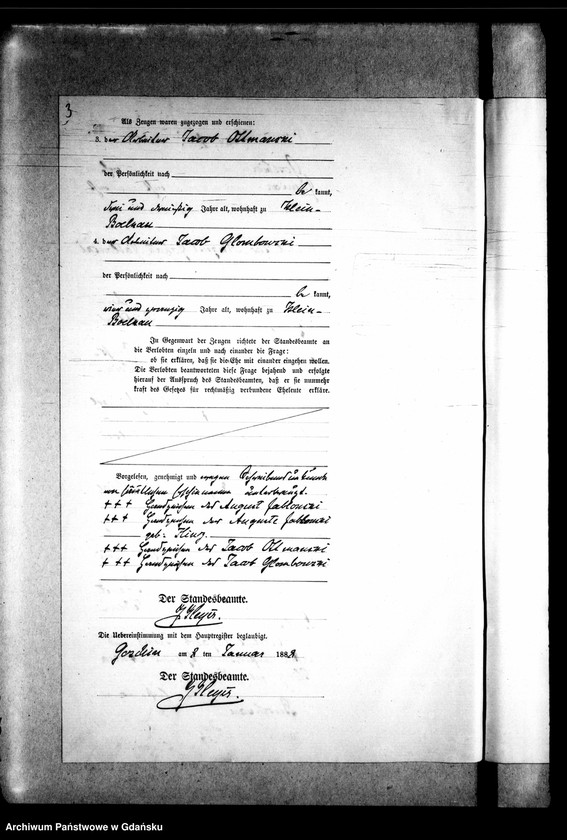 3
Als Zeugen waren zugezogen und erschienen:
3. der Arbeiter Jacob Ollmanski
der Persönlichkeit nach
be kannt,
drei und dreißig Jahre alt, wohnhaft zu Klein-
Boelkau
4. der Arbeiter Jacob Glombowski
der Persönlichkeit nach
be kannt,
vier und zwanzig Jahre alt, wohnhaft zu Klein-
Boelkau
In Gegenwart der Zeugen richtete der Standesbeamte an
die Verlobten einzeln und nach einander die Frage:
ob sie erklären, daß sie die Ehe mit einander eingehen wollen.
Die Verlobten beantworteten diese Frage bejahend und erfolgte
hierauf der Ausspruch des Standesbeamten, daß er sie nunmehr
kraft des Gesetzes für rechtmäßig verbundene Eheleute erkläre.
Vorgelesen, genehmigt und wegen Schreibensunkunde
von sämtlichen Erschienenen unterkreuzt.
+++ Handzeichen des August Jablonski
+++ Handzeichen der Auguste Jablonski
geb:
+++ Handzeichen des Jacob Ollmanski
+++ Handzeichen des Jacob Glombowski
Der Standesbeamte.
Die Uebereinstimmung mit dem Hauptregister beglaubigt.
am 8 ten Januar 188
Der Standesbeamte.
Archiwum Państwowe w Gdańsku